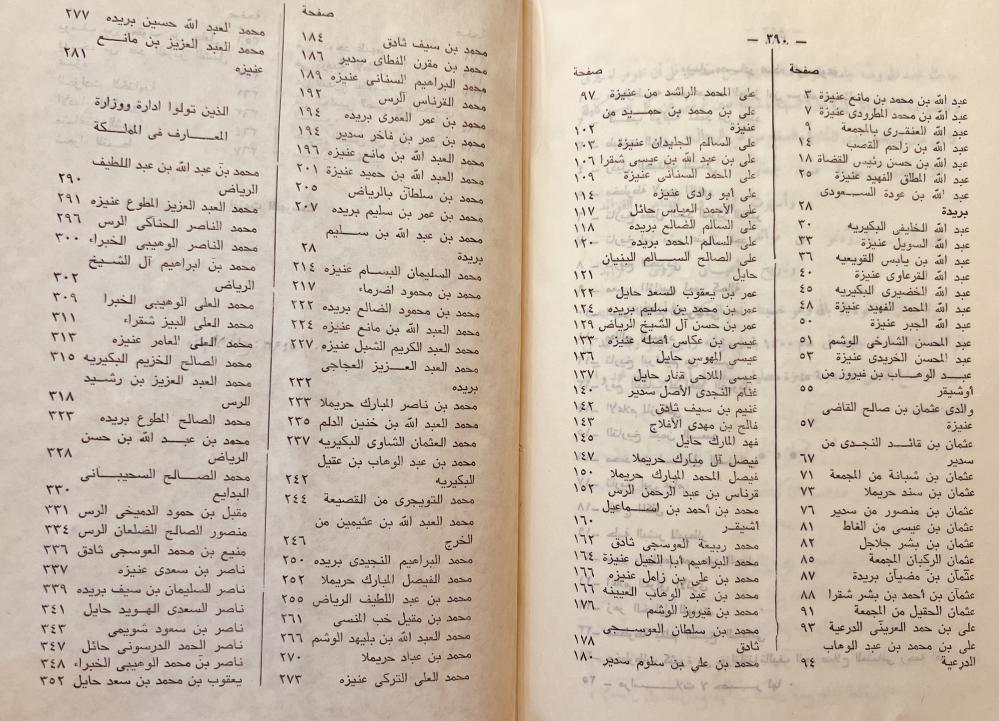 — ٣٩٠ —
صفحة
عبد الله بن محمد بن مانع عنيزة ٣
عبد الله بن محمد المطرودى عنيزة ٧
عبد الله العنقرى بالمجمعة ٩
عبد الله بن زاحم القصب ١٤
عبد الله بن حسن رئيس القضاة ١٨
عبد الله المطلق الفهيد عنيزة ٢٥
عبد الله بن عودة السعودى
بريدة ٢٨
عبد الله الخليفى البكيريه ٣٠
عبد الله السويل عنيزة ٣٣
عبد الله بن يابس القويعيه ٣٦
عبد الله القرعاوى عنيزة ٤٠
عبد الله الخضيرى البكيريه ٤٥
عبد الله المحمد الفهيد عنيزة ٤٨
عبد الله الجبر عنيزة ٥٠
عبد المحسن الشارخى الوشم ٥١
عبد المحسن الخريدى عنيزة ٥٣
عبد الوهاب بن فيروز من
أوشيقر ٥٥
والدى عثمان بن صالح القاضى
عنيزة ٥٧
عثمان بن قائد النجدى من
سدير ٦٧
عثمان بن شبانة من المجمعة ٧١
عثمان بن سند حريملا ٧٣
عثمان بن منصور من سدير ٧٦
عثمان بن عيسى من الغاط ٨١
عثمان بن بشر جلاجل ٨٢
عثمان الركبان المجمعة ٨٥
عثمان بن مضيان بريدة ٨٧
عثمان بن أحمد بن بشر شقرا ٨٨
عثمان الحقيل من المجمعة ٩١
على بن حمد العرينى الدرعية ٩٣
على بن محمد بن عبد الوهاب
الدرعية ٩٤
صفحة
على المحمد الراشد من عنيزة ٩٧
على بن محمد بن حميد من
عنيزة ١٠٢
على السالم الجليدان عنيزة ١٠٣
على بن عبد الله بن عيسى شقرا ١٠٦
على المحمد السنانى عنيزة ١٠٩
على أبو وادى عنيزه ١١٤
على الأحمد العباس حائل ١١٧
على السالم الضالع بريده ١١٨
على السالم المحمد بريده ١٢٠
على الصالح السالم البنيان
حايل ١٢١
عمر بن يعقوب السعد حايل ١٢٢
عمر بن محمد بن سليم بريده ١٢٤
عمر بن حسن آل الشيخ الرياض ١٢٩
عيسى بن عكاس أصله عنيزة ١٣٣
عيسى المهوس حايل ١٣٦
عيسى الملاحى قنار حايل ١٣٧
غنام النجدى الأصل سدير ١٤٠
غنيم بن سيف ثادق ١٤٢
فالح بن مهدى الأفلاج ١٤٣
فهد المارك حايل ١٤٥
فيصل آل مبارك حريملا ١٤٧
فيصل المحمد المبارك حريملا ١٥٠
قرناس بن عبد الرحمن الرس ١٥٢
محمد بن أحمد بن اسماعيل
اشيقر ١٦٠
محمد ربيعة العوسجى ثادق ١٦٢
محمد البراهيم أبا الخيل عنيزة ١٦٤
محمد بن على بن زامل عنيزه ١٦٦
محمد بن عبد الوهاب العيينه ١٦٦
محمد بن فيروز الوشم ١٧٦
محمد بن سلطان العوسجى
ثادق ١٧٨
محمد بن على بن سلوم سدير ١٨٠
صفحة
محمد بن سيف ثادق ١٨٤
محمد بن مقرن الفطاى سدير ١٨٦
محمد البراهيم السنانى عنيزه ١٨٩
محمد القرناس الرس ١٩٢
محمد بن عمر العمرى بريده ١٩٤
محمد بن عمر بن فاخر سدير ١٩٤
محمد العبد الله بن مانع عنيزه ١٩٦
محمد العبد الله بن حميد عنيزة ٢٠١
محمد بن سلطان بالرياض ٢٠٥
محمد بن عمر بن سليم بريده ٢٠٧
محمد بن عبد الله بن سليم
بريدة ٢٨
محمد السليمان البسام عنيزه ٢١٤
محمد بن محمود اضرماء ٢١٧
محمد بن محمود الضالع بريده ٢٢٢
محمد العبد الله بن مانع عنيزه ٢٢٤
محمد العبد الكريم الشبل عنيزه ٢٢٧
محمد العبد العزيز العجاجى
بريده ٢٣٢
محمد بن ناصر المبارك حريملا ٢٣٣
محمد العبد الله بن خنين الدلم ٢٣٥
محمد العثمان الشاوى البكيريه ٢٣٧
محمد بن عبد الوهاب بن عقيل
البكيريه ٢٤٢
محمد التويجرى من القصيعة ٢٤٤
محمد العبد الله بن عثيمين من
الخرج ٢٤٦
محمد البراهيم النجيدى بريده ٢٥٠
محمد الفيصل المبارك حريملا ٢٥٢
محمد بن عبد اللطيف الرياض ٢٥٥
محمد بن مقيل خب المنسى ٢٦١
محمد العبد الله بن بليهد الوشم ٢٦٦
محمد بن عياد حريملا ٢٧٠
محمد العلى التركى عنيزه ٢٧٣
محمد العبد الله حسين بريده ٢٧٧
محمد العبد العزيز بن مانع
عنيزه ٢٨١
الذين تولوا ادارة ووزارة
المعارف فى المملكة
محمد بن عبد الله بن عبد اللطيف
الرياض ٢٩٠
محمد العبد العزيز المطوع عنيزه ٢٩١
محمد الناصر الحناكى الرس ٢٩٦
محمد الناصر الوهيبى الخبراء ٣٠٠
محمد بن ابراهيم آل الشيخ
الرياض ٣٠٢
محمد العلى الوهيبى الخبرا ٣٠٩
محمد العلى البيز شقراء ٣١١
محمد العلى العامر عنيزه ٣١٣
محمد الصالح الخزيم البكيريه ٣١٥
محمد العبد العزيز بن رشيد
الرس ٣١٨
محمد الصالح المطوع بريده ٣٢٣
محمد بن عبد الله بن حسن
الرياض ٣٢٨
محمد الصالح السحيبانى
البدايع ٣٣٠
مقبل بن حمود الدميخى الرس ٣٣١
منصور الصالح الضلعان الرس ٣٣٤
منيع بن محمد العوسجى ثادق ٣٣٦
ناصر بن سعدى عنيزه ٣٣٧
ناصر السليمان بن سيف بريده ٣٣٩
ناصر السعدى الهويد حايل ٣٤١
ناصر بن سعود شويمى ٣٤٣
ناصر الحمد الدرسونى حائل ٣٤٧
ناصر بن محمد الوهيبى الخبراء ٣٤٨
يعقوب بن محمد بن سعد حايل ٣٥٢